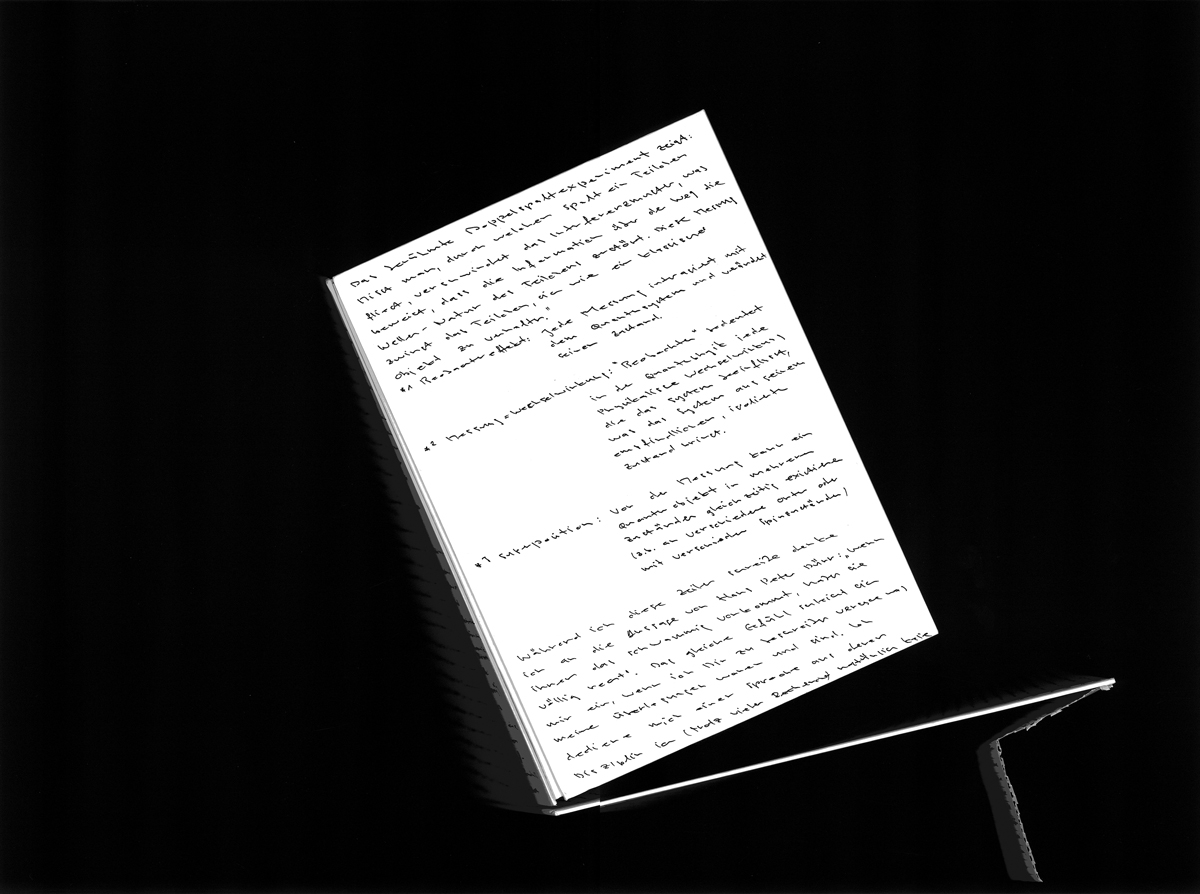 Das berühmte Doppelspaltexperiment zeigt:
Misst man, durch welchen Spalt ein Teilchen
fliegt, verschwindet das Interferenzmuster, was
beweist, dass die Information über den Weg die
Wellen-Natur des Teilchens zerstört. Diese Messung
zwingt das Teilchen, sich wie ein klassisches
Objekt zu verhalten."
*1 Beobachtereffekt: Jede Messung interagiert mit
dem Quantensystem und verändert
seinen Zustand.
*2 Messung = Wechselwirkung: "Beobachten" bedeutet
in der Quantenphysik jede
Physikalische Wechselwirkung,
die das System beeinflusst,
was das System aus seinem
empfindlichen, isolierten
Zustand bringt.
*3 Superposition: Vor der Messung kann ein
Quantenobjekt in mehreren
Zuständen gleichzeitig existieren
(z.b. an verschiedene Orten oder
mit verschieden Spinzuständen)
Während ich diese Zeilen schreibe denke
ich an die Aussage von Hans Peter Dürr: „Wenn
ihnen das schwammig vorkommt, haben sie
völlig recht". Das gleiche Gefühl schleicht sich
mir ein, wenn ich Dir zu beschreiben versuche was
meine Überlegungen waren und sind. Ich
bediene mich einer Sprache aus deren
Disziplin ich (trotz vieler Recherche) natürlich keine